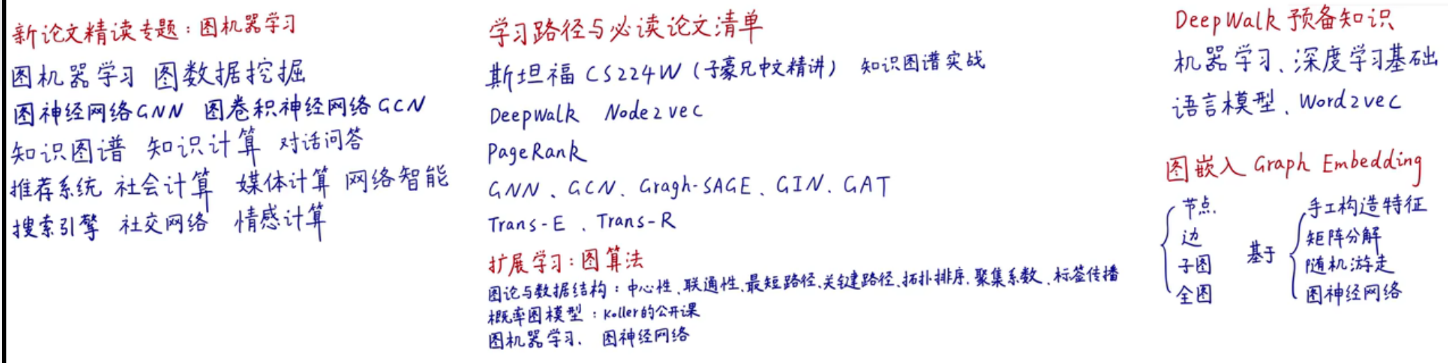 新论文精读专题：图机器学习
图机器学习 图数据挖掘
图神经网络GNN 图卷积神经网络GCN
知识图谱 知识计算 对话问答
推荐系统 社会计算 媒体计算 网络智能
搜索引擎 社交网络 情感计算
学习路径与必读论文清单
斯坦福CS224W（子豪兄中文精讲） 知识图谱实战
Deepwalk Node2vec
PageRank
GNN、GCN、Gragh-SAGE、GIN、GAT
Trans-E、Trans-R
扩展学习：图算法
图论与数据结构：中心性、联通性、最短路径、关键路径、拓扑排序、聚集系数、标签传播
概率图模型：Koller的公开课
图机器学习、图神经网络
DeepWalk 预备知识
机器学习、深度学习基础
语言模型、Word2vec
图嵌入 Graph Embedding
节点
边
子图
全图
基于
手工构造特征
矩阵分解
随机游走
图神经网络